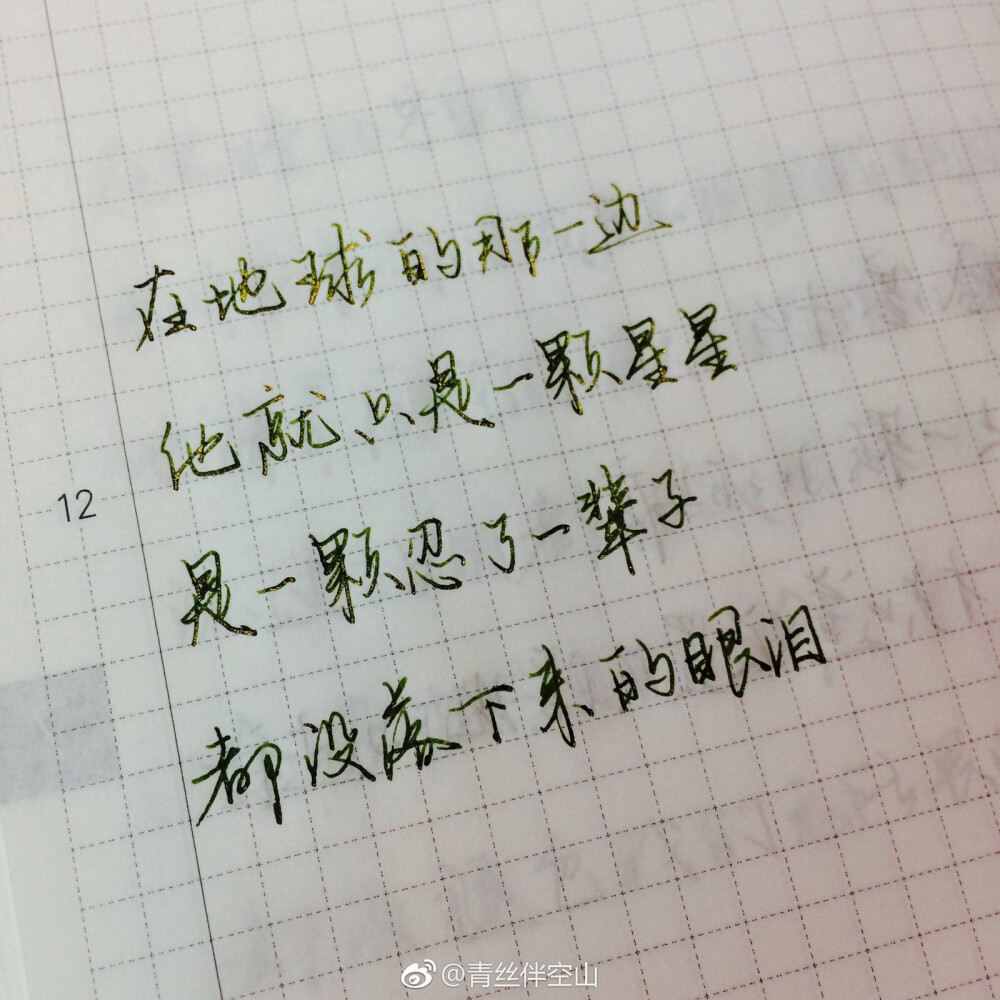 在地球的那一边
他就只是一颗星星
12
是一颗忍了一辈子
都没落下来的眼泪
@青丝伴空山